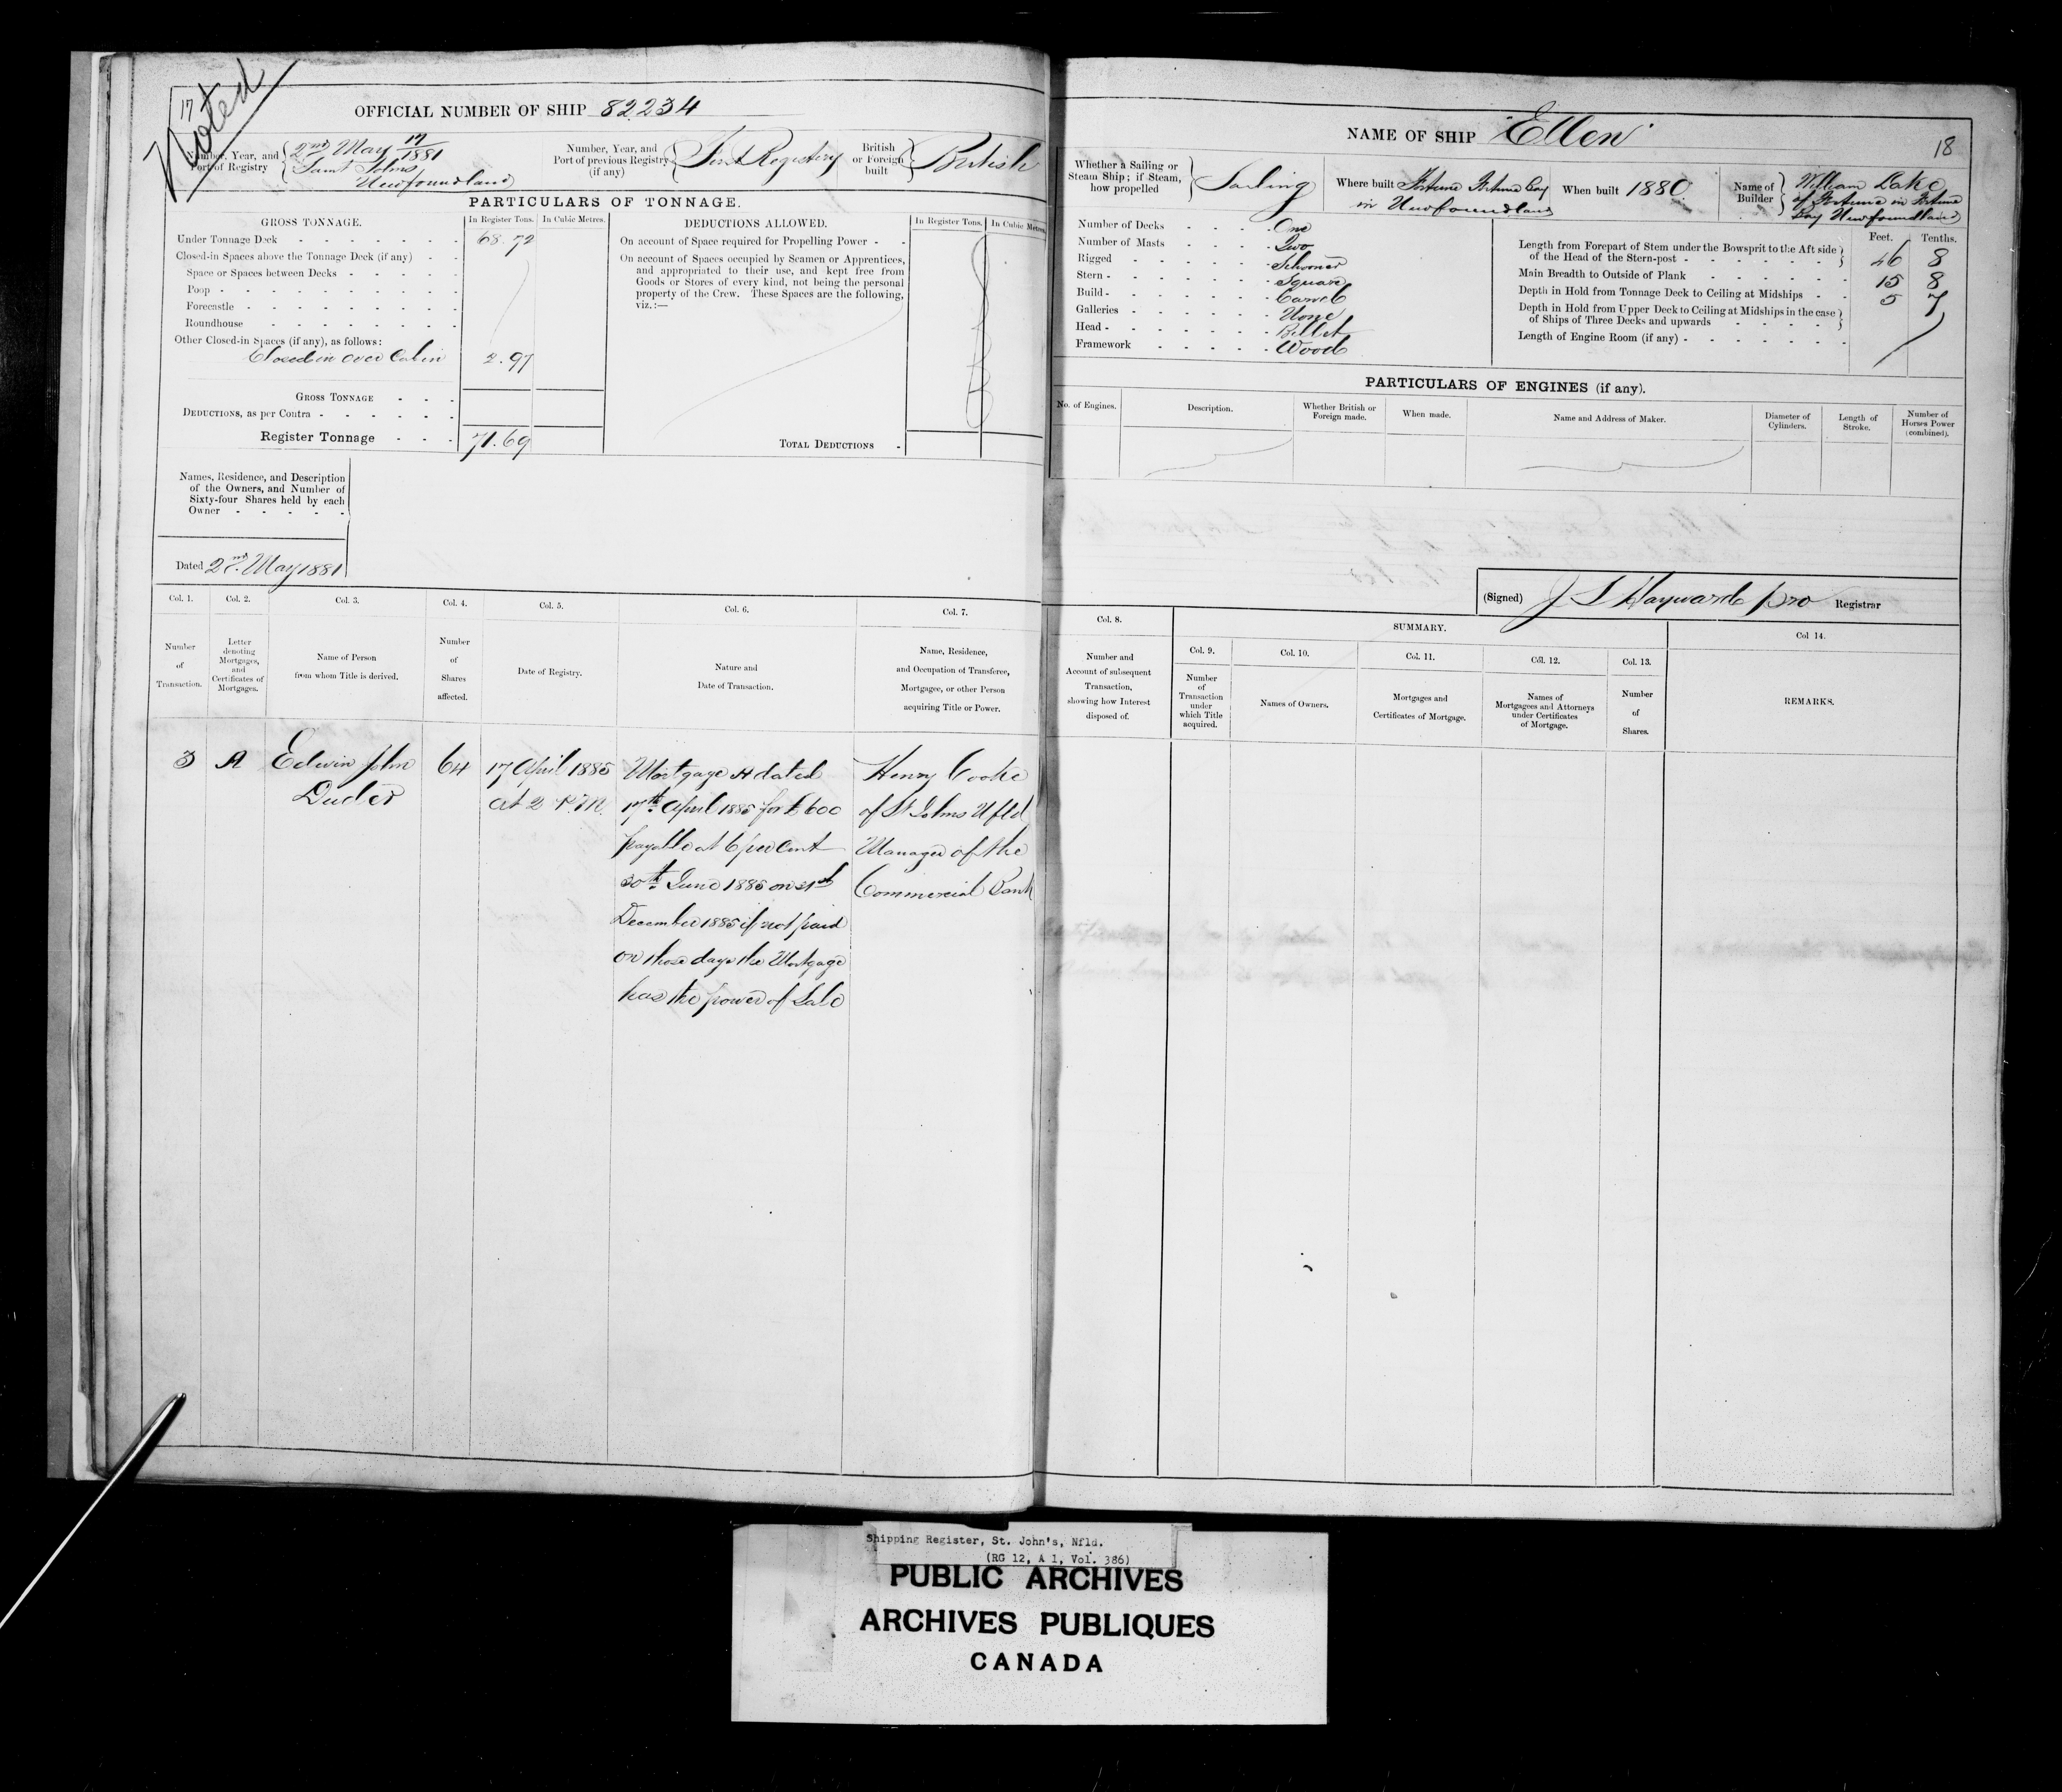 17
Noted
OFFICIAL NUMBER OF SHIP 82234
Number, Year, and Port of Registry
2nd May 17/1881
Saint Johns
Newfoundland
Number, Year, and Port of previous Registry (if any)
First Registery
British or Foreign built
British
PARTICULARS OF TONNAGE.
GROSS TONNAGE.
In Register Tons.
In Cubic Metres.
Under Tonnage Deck 68.72
Closed-in Spaces above the Tonnage Deck (if any)
Space or Spaces between Decks
Poop
Forecastle
Roundhouse
Other Closed-in Spaces (if any), as follows:
Closed in over Cabin 2.97
GROSS TONNAGE
DEDUCTIONS, as per Contra
Register Tonnage 71.69
DEDUCTIONS ALLOWED.
In Register Tons.
In Cubic Metres.
On account of Space required for Propelling Power
On account of Spaces occupied by Seamen or Apprentices,
and appropriated to their use, and kept free from
Goods or Stores of every kind, not being the personal
property of the Crew. These Spaces are the following,
viz.:—
TOTAL DEDUCTIONS
Names, Residence, and Description
of the Owners, and Number of
Sixty-four Shares held by each
Owner
Dated 2nd. May 1881
Col. 1.
Number of Transaction.
Col. 2.
Letter denoting Mortgages, and Certificates of Mortgages.
Col. 3.
Name of Person from whom Title is derived.
Col. 4.
Number of Shares affected.
Col. 5.
Date of Registry.
Col. 6.
Nature and Date of Transaction.
Col. 7.
Name, Residence, and Occupation of Transferee, Mortgagee, or other Person acquiring Title or Power.
3
A
Edwin John
Duder
64
17 April 1885
at 2 P.M.
Mortgage A dated
17th April 1885 for £600
payable at 6 per Cent
30th June 1885 on 31st
December 1885 if not paid
on those days the Mortgage
has the power of Sale
Henry Cooke
of St Johns Nfld
Manager of the
Commercial Bank
NAME OF SHIP "Ellen"
18
Whether a Sailing or Steam Ship; if Steam, how propelled
Sailing
Where built Fortune Fortune Bay
in Newfoundland
When built 1880
Name of Builder
William Lake
of Fortune in Fortune
Bay Newfoundland
Number of Decks One
Number of Masts Two
Rigged Schooner
Stern Square
Build Carvel
Galleries None
Head Billet
Framework Wood
Feet. Tenths.
Length from Forepart of Stem under the Bowsprit to the Aft side
of the Head of the Stern-post 46 8
Main Breadth to Outside of Plank 15 8
Depth in Hold from Tonnage Deck to Ceiling at Midships 5 7
Depth in Hold from Upper Deck to Ceiling at Midships in the case
of Ships of Three Decks and upwards
Length of Engine Room (if any)
PARTICULARS OF ENGINES (if any).
No. of Engines.
Description.
Whether British or Foreign made.
When made.
Name and Address of Maker.
Diameter of Cylinders.
Length of Stroke.
Number of Horses Power (combined).
(Signed) J S Hayward pro Registrar
Col. 8.
Number and Account of subsequent Transaction, showing how Interest disposed of.
SUMMARY.
Col. 9.
Number of Transaction under which Title acquired.
Col. 10.
Names of Owners.
Col. 11.
Mortgages and Certificates of Mortgage.
Col. 12.
Names of Mortgagees and Attorneys under Certificates of Mortgage.
Col. 13.
Number of Shares.
Col 14.
REMARKS.
Shipping Register, St. John's, Nfld.
(RG 12, A 1, Vol. 386)
PUBLIC ARCHIVES
ARCHIVES PUBLIQUES
CANADA